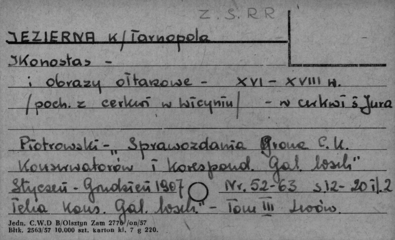 Z.S.R.R
JEZIERNA K/Tarnopola
Ikonostas -
i obrazy ołtarzowe - XVI - XVIII w.
/poch. z cerkwi w Wicyniu/ - w cerkwi ś Jura
Piotrowski - "Sprawozdania Grona C.K.
Konserwatorów i Korespond. Gal. wsch"
Styczeń - Grudzień 1907 Nr. 52-63 s12-20 il. 2
Teka Kons. Gal. wsch" - Tom III Lwów.
Jedn. C.W.D B/Olsztyn Zam 2770/on/57
Bltk. 2563/57 10.000 szt. karton kl. 7 g 220.